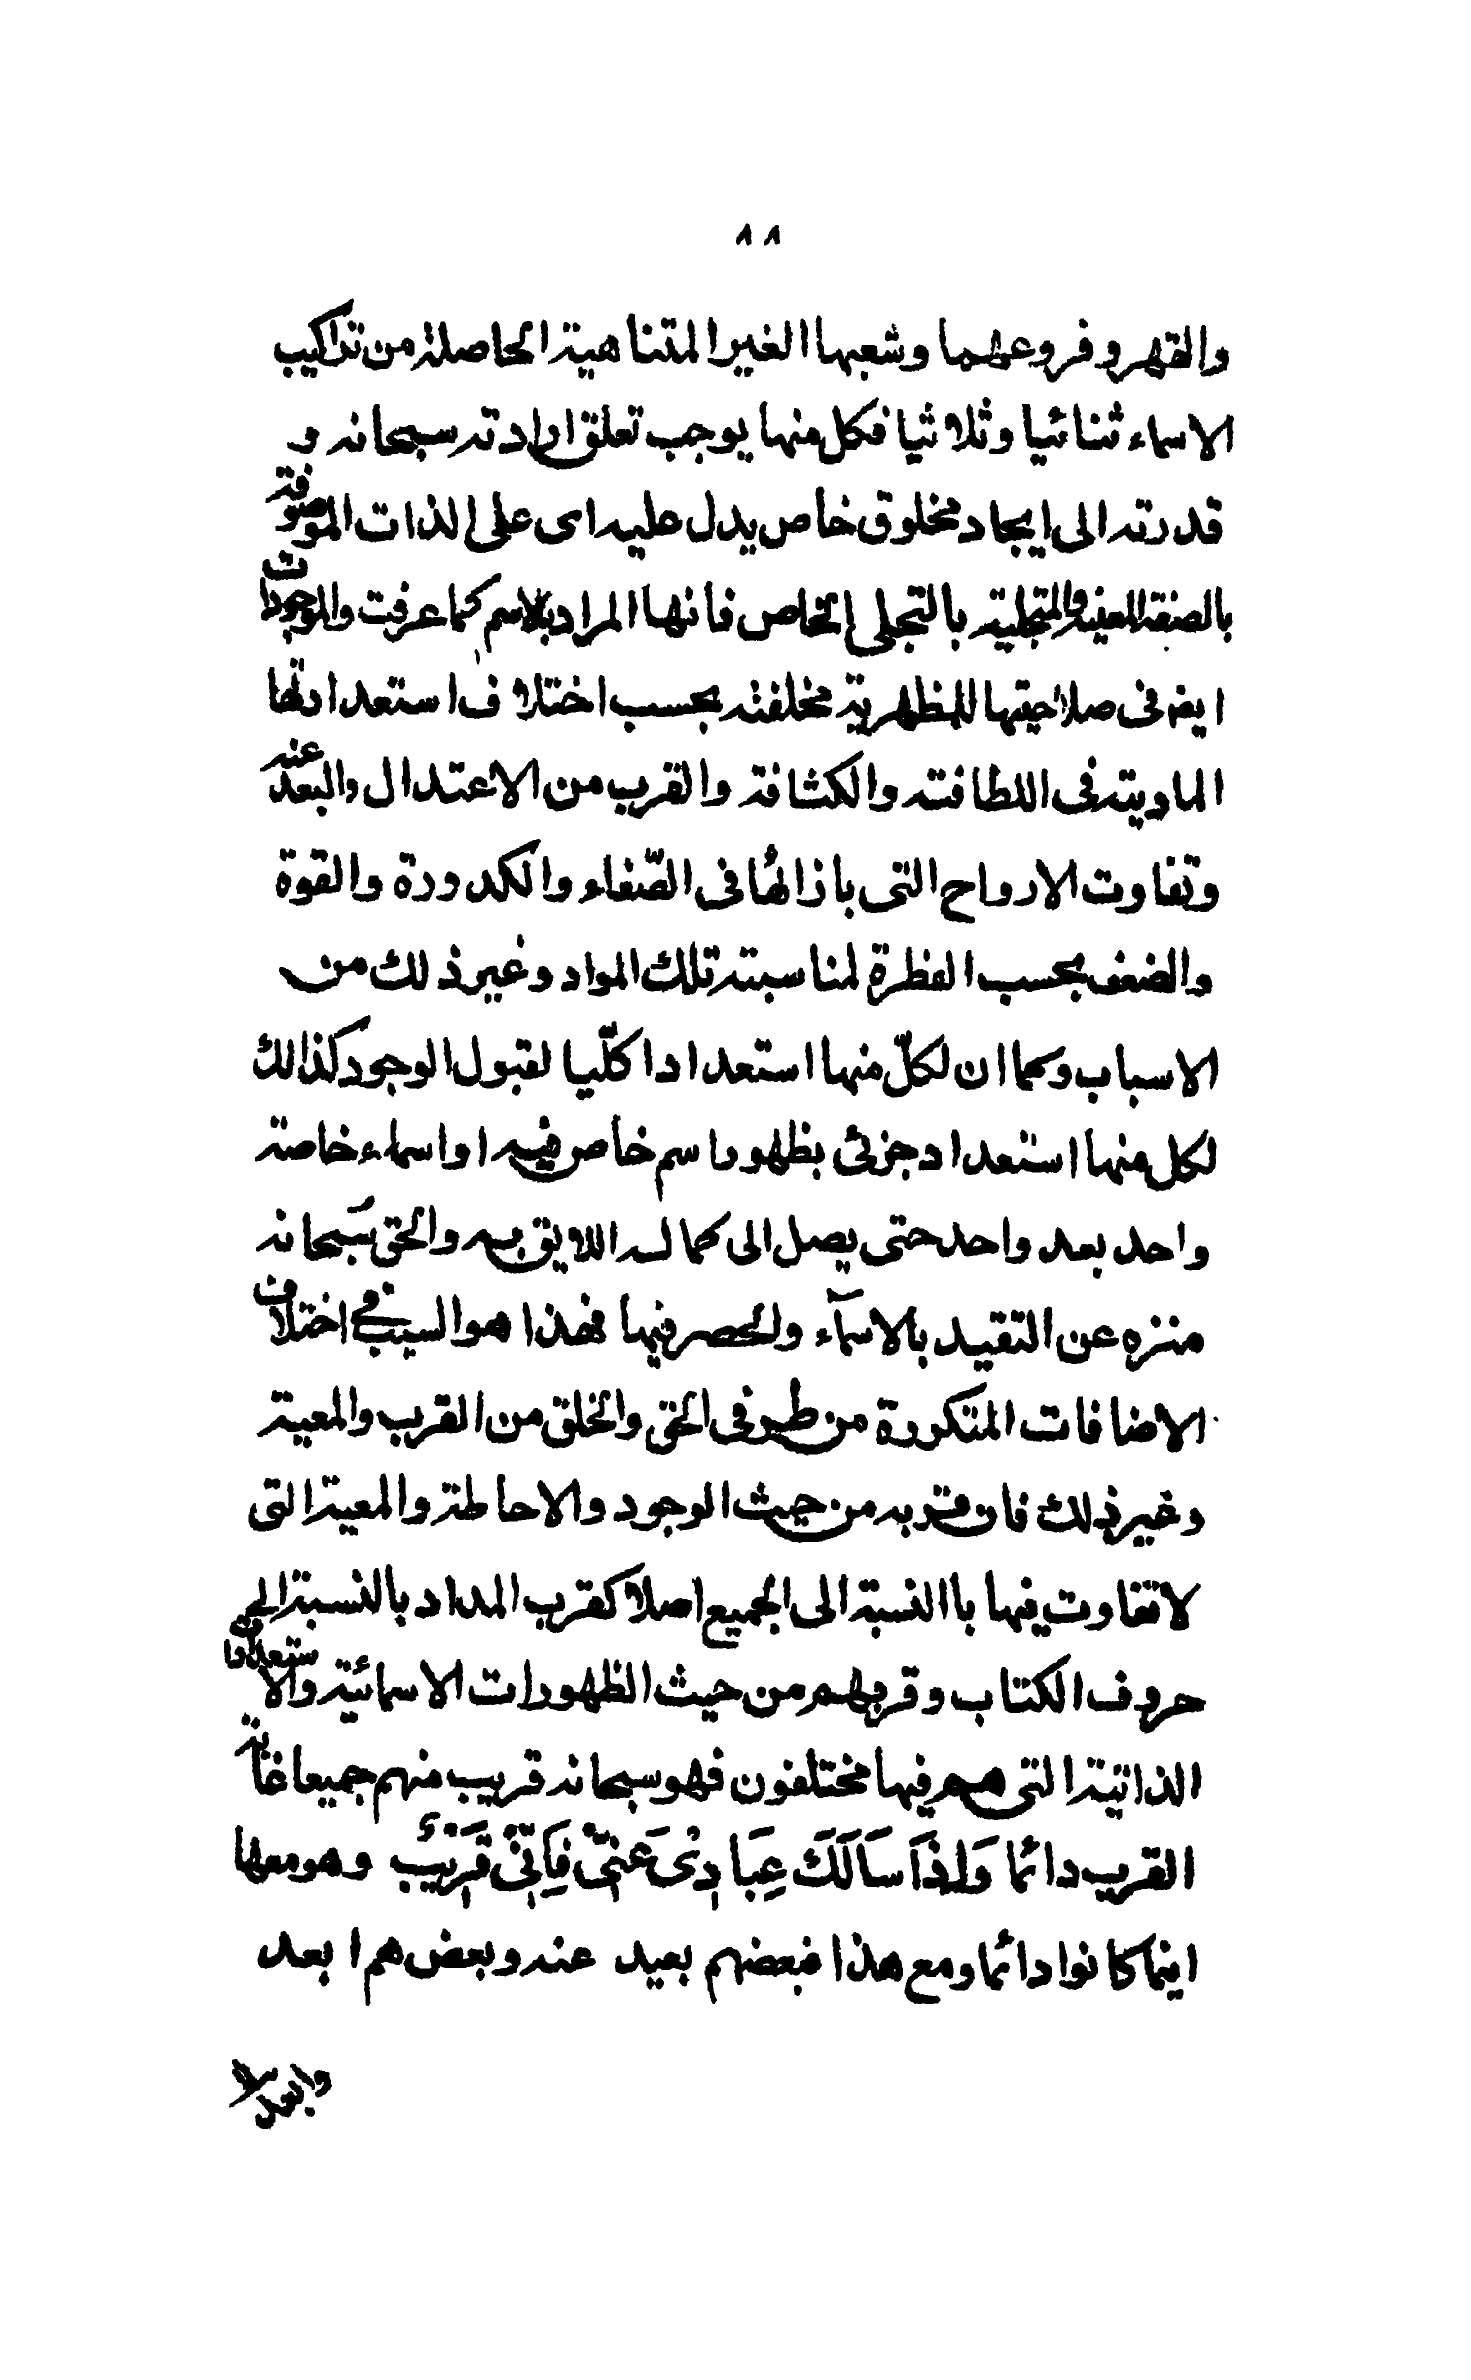 ٨٨
والقهر وفروعهما وشعبها الغير المتناهية الحاصلة من تراكيب
الاسماء ثنائيا وثلاثيا فكل منها يوجب تعلق ارادته سبحانه و
قدرته الى ايجاد مخلوق خاص يدل عليه اى على الذات الموصوفة
بالصفة المعينة والمتجلية بالتجلى الخاص فانها المراد بالاسم كما عرفت والموجودات
ايضا فى صلاحيتها للمظهرية مختلفة بحسب اختلاف استعداداتها
المادية فى اللطافة والكثافة والقرب من الاعتدال والبعد عنه
وتفاوت الارواح التى بازائها فى الصّفاء والكدورة والقوة
والضعف بحسب الفطرة لمناسبته تلك المواد وغير ذلك من
الاسباب وكما ان لكلّ منها استعدادا كلّيا لقبول الوجود كذالك
لكل منها استعداد جزئى بظهور اسم خاص فيه او اسماء خاصة
واحد بعد واحد حتى يصل الى كماله اللايق به والحق سَبحانه
منزه عن التقيد بالاسمآء والحصر فيها فهذا هو السبب فى اختلاف
الاضافات المتكررة من طرفى الحق والخلق من القرب والمعية
وغير ذلك فان قربه من حيث الوجود والاحاطة والمعية التى
لا تفاوت فيها باالنسبة الى الجميع اصلا كقرب المداد بالنسبة الى
حروف الكتاب وقربهم من حيث الظهورات الاسمائية والاستعدادات
الذاتية التى هم فيها مختلفون فهو سبحانه قريب منهم جميعا غاية
القرب دائما وَاِذَا سَاَلَكَ عِبَادِىْ عَنِّىْ فَاِنِّىْ قَرِيْبٌ وهو معها
اينما كانوا دائما ومع هذا فبعضهم بعيد عنه وبعض هم ابعد
وابعد